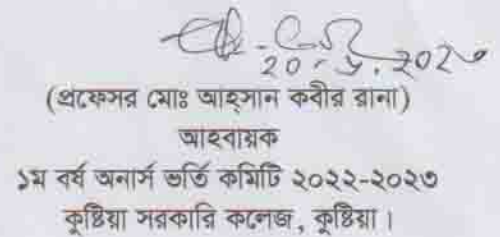 (প্রফেসর মোঃ আহ্সান কবীর রানা)
আহবায়ক
১ম বর্ষ অনার্স ভর্তি কমিটি ২০২২-২০২৩
কুষ্টিয়া সরকারি কলেজ, কুষ্টিয়া।